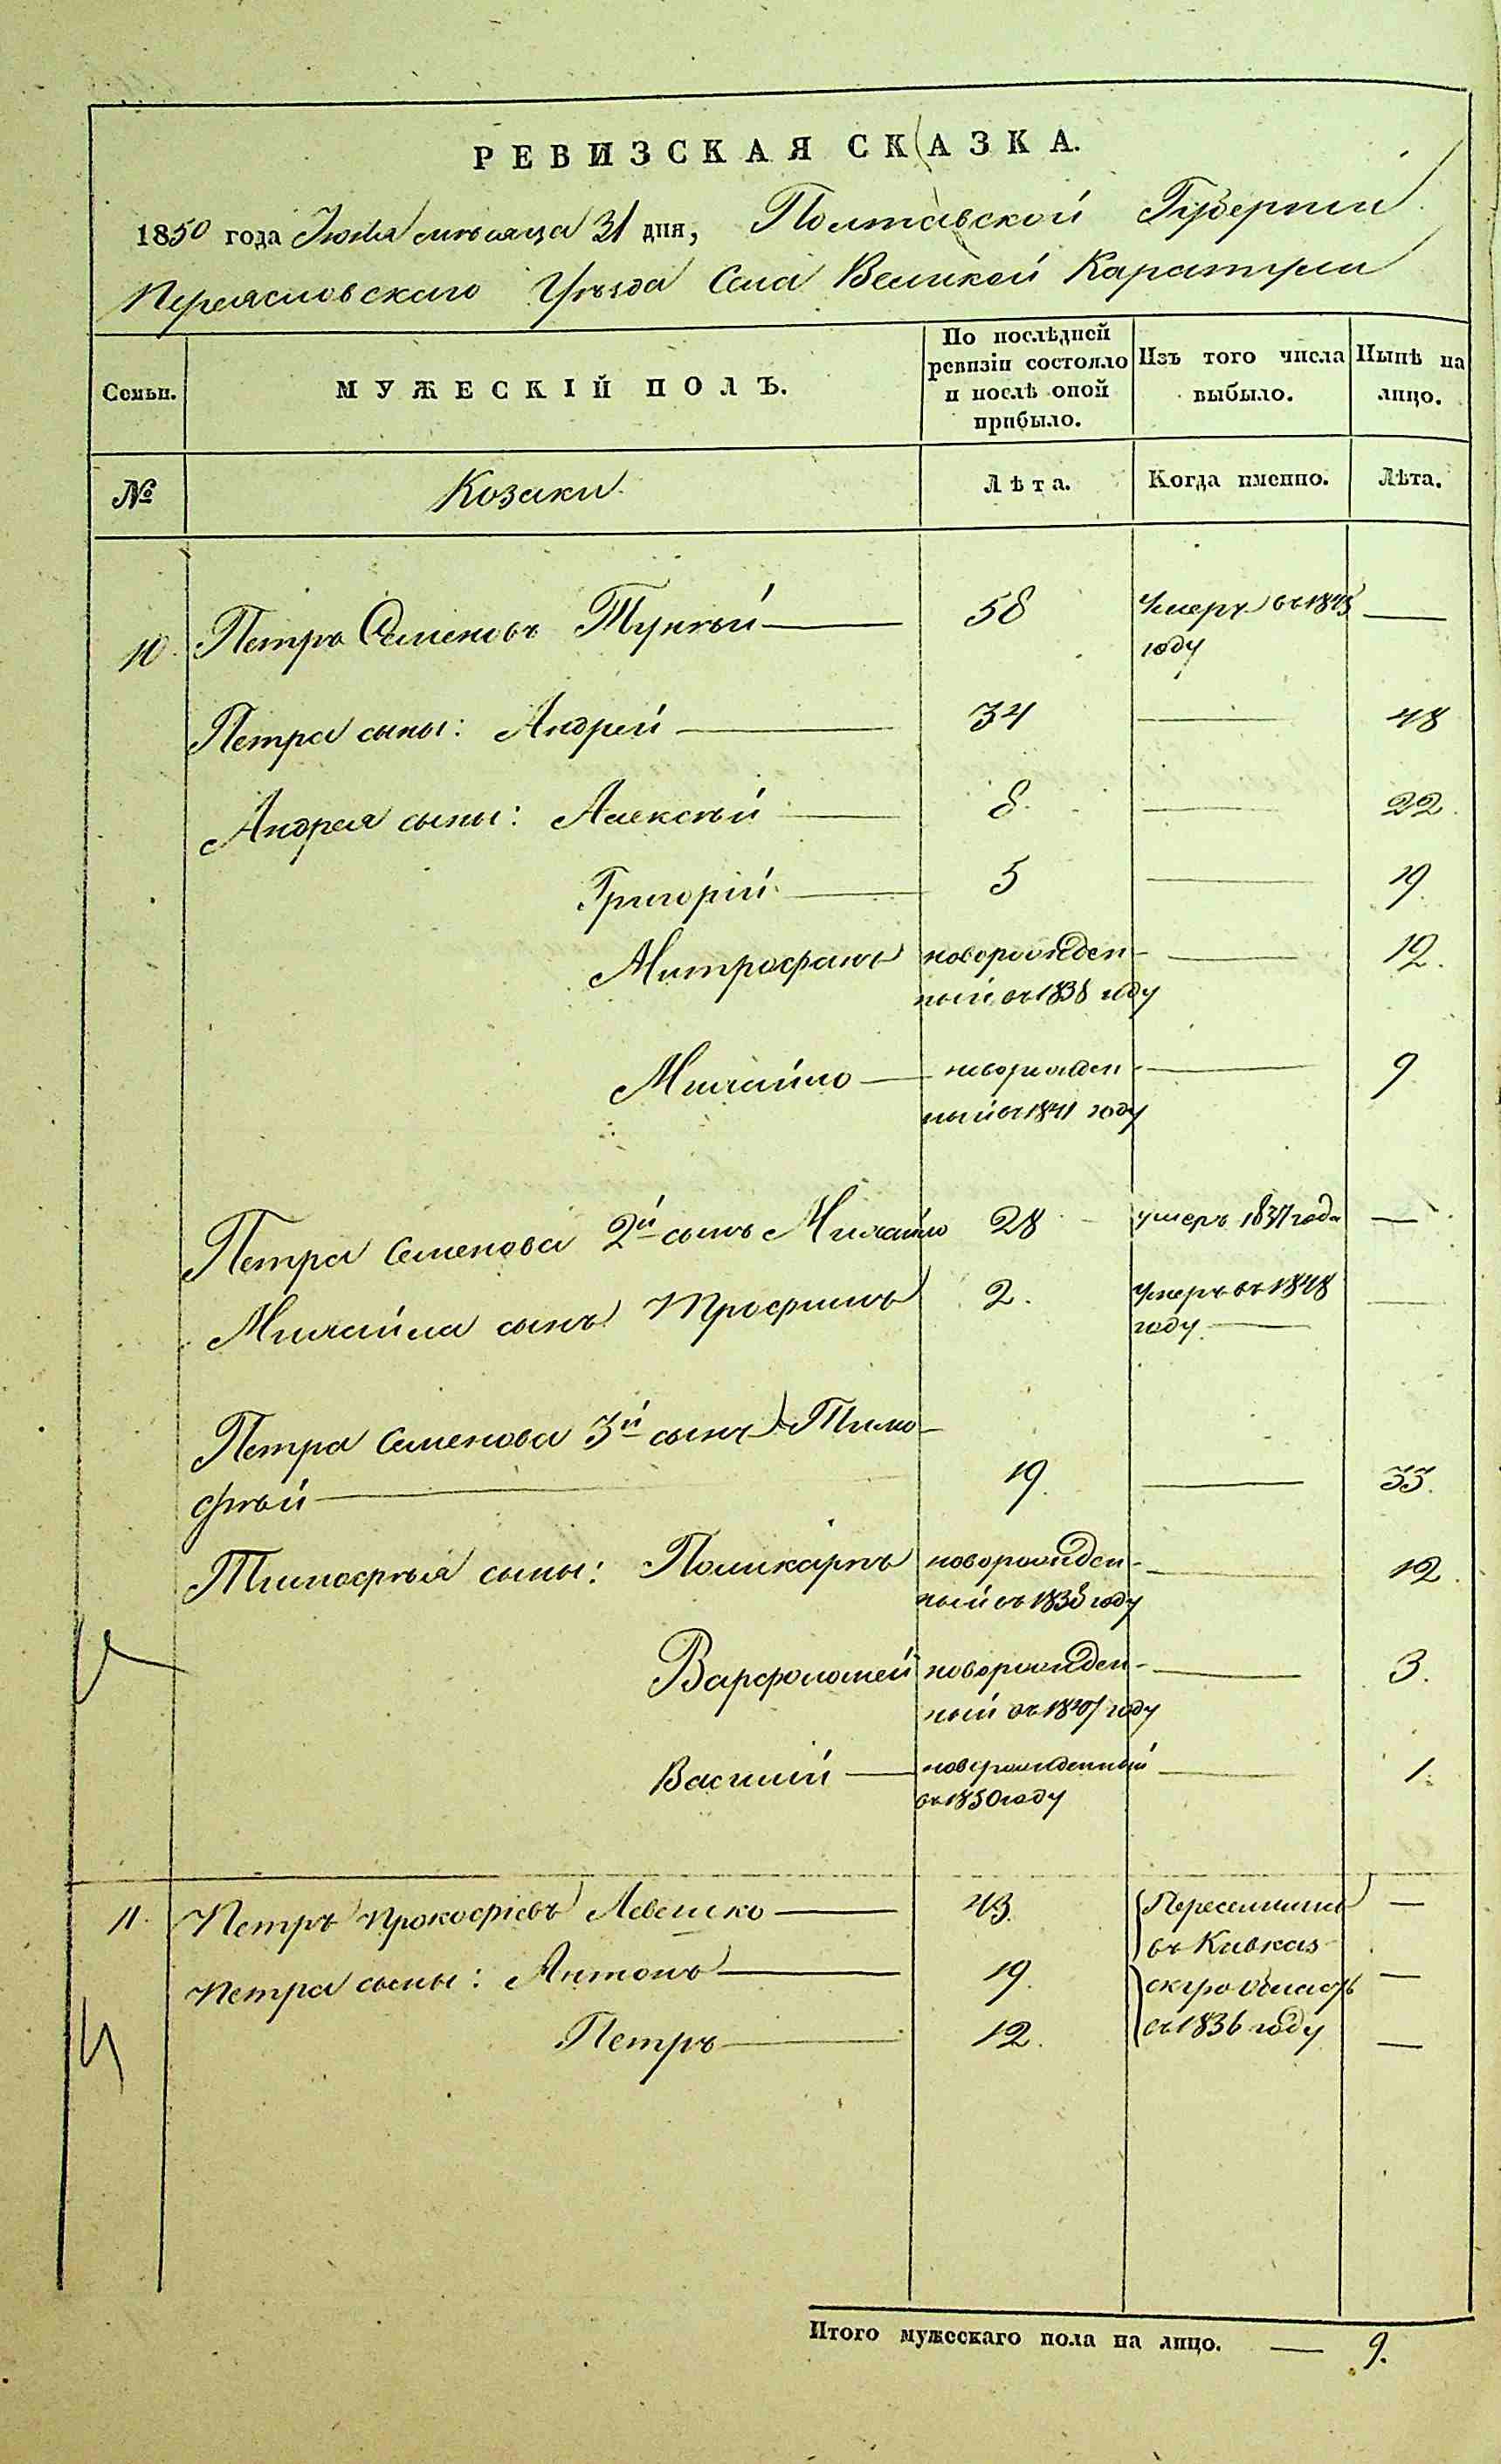 РЕВИЗСКАЯ СКАЗКА.
1850 года Июля месяца 31 дня, Полтавской Губернии
Переясловскаго Уѣзда Села Великой Каратули
Семьи.
МУЖЕСКІЙ ПОЛЪ.
По послѣдней ревизіи состояло и послѣ оной прибыло.
Изъ того числа выбыло.
Нынѣ на лицо.
№
Козаки.
Лѣта.
Когда именно.
Лѣта.
10. Петръ Семеновъ 58 Умеръ въ 1843 году —
Петра сыны: Андрей — 34 — 48
Андрея сыны: Алексѣй — 8. — 22.
Григорій — 5 — 19.
Митрофанъ новорожден-ный въ 1838 году — 12.
Михайло — новорожден-ный въ 1841 году — 9
Петра Семенова 2й сынъ Михайло 28 умеръ 1837 года —
Михайла сынъ Трофимъ 2. Умеръ въ 1848 году —
Петра Семенова 3й сынъ Тимо-
фѣй — 19. — 33.
Тимофѣя сыны: Поликарпъ новорожден-ный въ 1838 году — 12.
Варфоломей новорожден-ный въ 1847 году — 3.
Василій — новорожденный въ 1850 году — 1.
11. Петръ Прокофіевъ Левешко — 43. Переселились —
въ Кавказ-
Петра сыны: Антонъ — 19. скую область —
Петръ — 12. въ 1836 году —
Итого мужескаго пола на лицо. — 9.